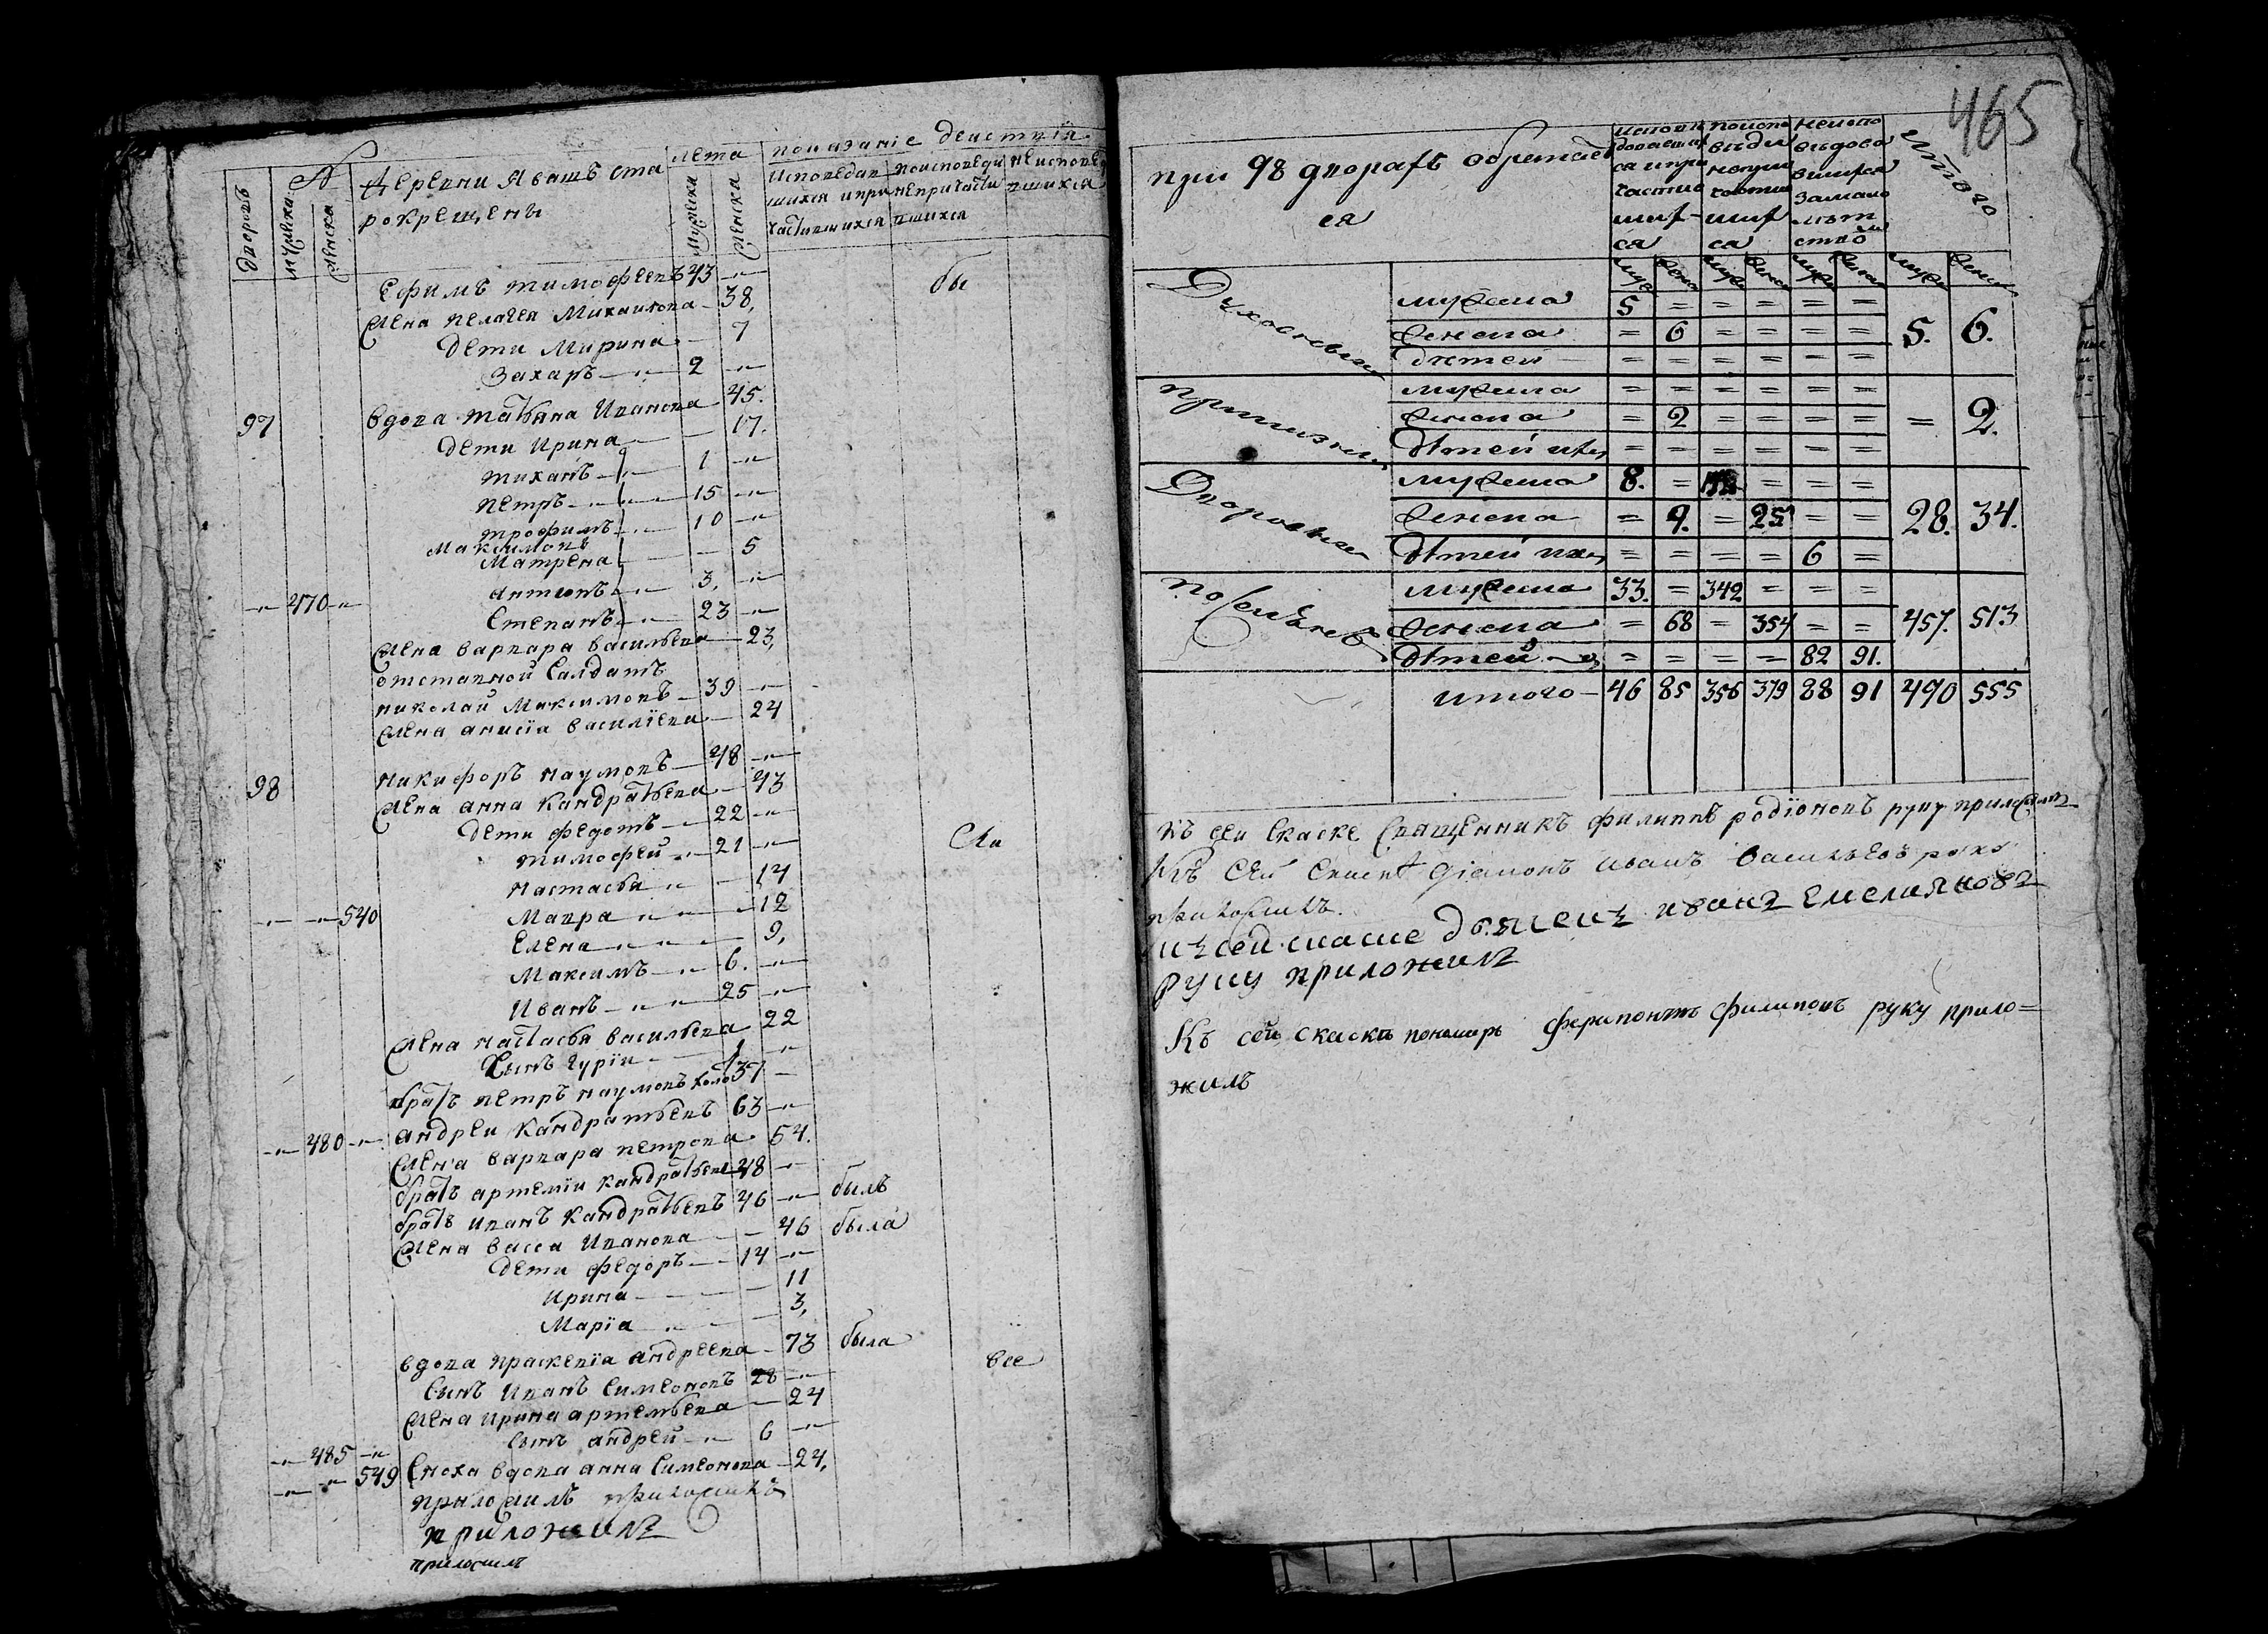 № Деревни Явашъ ста лета показаніе действія
дворовъ мужска женска рокрещены мужска женска Исповедав шихся и при частившихся поисповеди непричасти вшихся неисповед вшихся
Ефимъ тимофеевъ 43 -„-
Жена пелагея Михаилова - 38, бы
дети Мирина - 7
Захаръ -„- 2 -„-
97 вдова татьяна Иванова 45.
дети Ирина - 17.
тиханъ - 1 -„-
петръ -„- 15 -„-
трофимъ -„- 10 -„-
Максимовъ
Матрена - 5
-„- 470 -„- антонъ -„- 3, -„-
Степанъ -„- 23 -„-
Жена варвара васильева - 23,
отставной Салдатъ
николай Максимовъ - 39 -„-
Жена анисія василіева - 24
98 никифоръ наумовъ - 48 -„-
Жена анна Кандратьева - 43
дети федотъ - 22 -„-
тимофеи -„- 21 -„- Жи
настасья -„- 14
-„- -„- 540 Мавра -„- 12
Елена -„- 9,
Максимъ -„- 6. -„-
Иванъ -„- 25 -„-
Жена настасья васильева 22
Сынъ гурiи - 1 -„-
братъ петръ наумовъ холо 37 -
-„- 480 -„- андреи Кандратьевъ 63 -„-
Жена варвара петрова 54.
братъ артемiи кандратьевъ 48 -„-
братъ иванъ Кандратьевъ 46 -„- былъ
Жена васса Иванова - 46 была
дети федоръ - 14 -„-
Ирина - 11
Марiа - 3,
вдова праскевiа андреева - 73 была
Сынъ Иванъ Симеоновъ 28 -„- все
Жена ирина артемьева - 24
-„- 485 -„- сынъ андрей -„- 6 -„-
-„- -„- 549 Сноха вдова анна Симеонова - 24,
приложилъ приложилъ
приложилъ
приложилъ
465
при 98 дворахъ обретает ся исповедавшихся и причастившихся поисповеди непричастившихся неисповедовавшихся замалолетствомъ Итого
муж женс муж женс муж женс муж женс
Духовныхъ мужеска 5 = = = = = 5. 6.
женска = 6 = = = =
детей = = = = = =
приказныхъ мужеска = = = = = = = 2.
женска = 2 = = = =
детей ихъ = = = = = =
Дворовыхъ мужеска 8. = = = = 28. 34.
женска = 9. = 25 = =
детей ихъ = = = = 6 =
Поселянъ мужеска 33. = 342 = = = 457. 513
женска = 68 = 354 = =
детей = = = = 82 91.
итого - 46 85 356 379 88 91 490 555
къ сеи Скаске Священникъ филиппъ родiоновъ руку приложилъ
Къ Сей Скаскѣ дiаконъ иванъ васильевъ руку
приложилъ.
къ сей скаске дьячекъ иванъ Емелияновъ
руку приложилъ
Къ сей скаскѣ пономарь Ферапонтъ Филиповъ руку прило=
жилъ